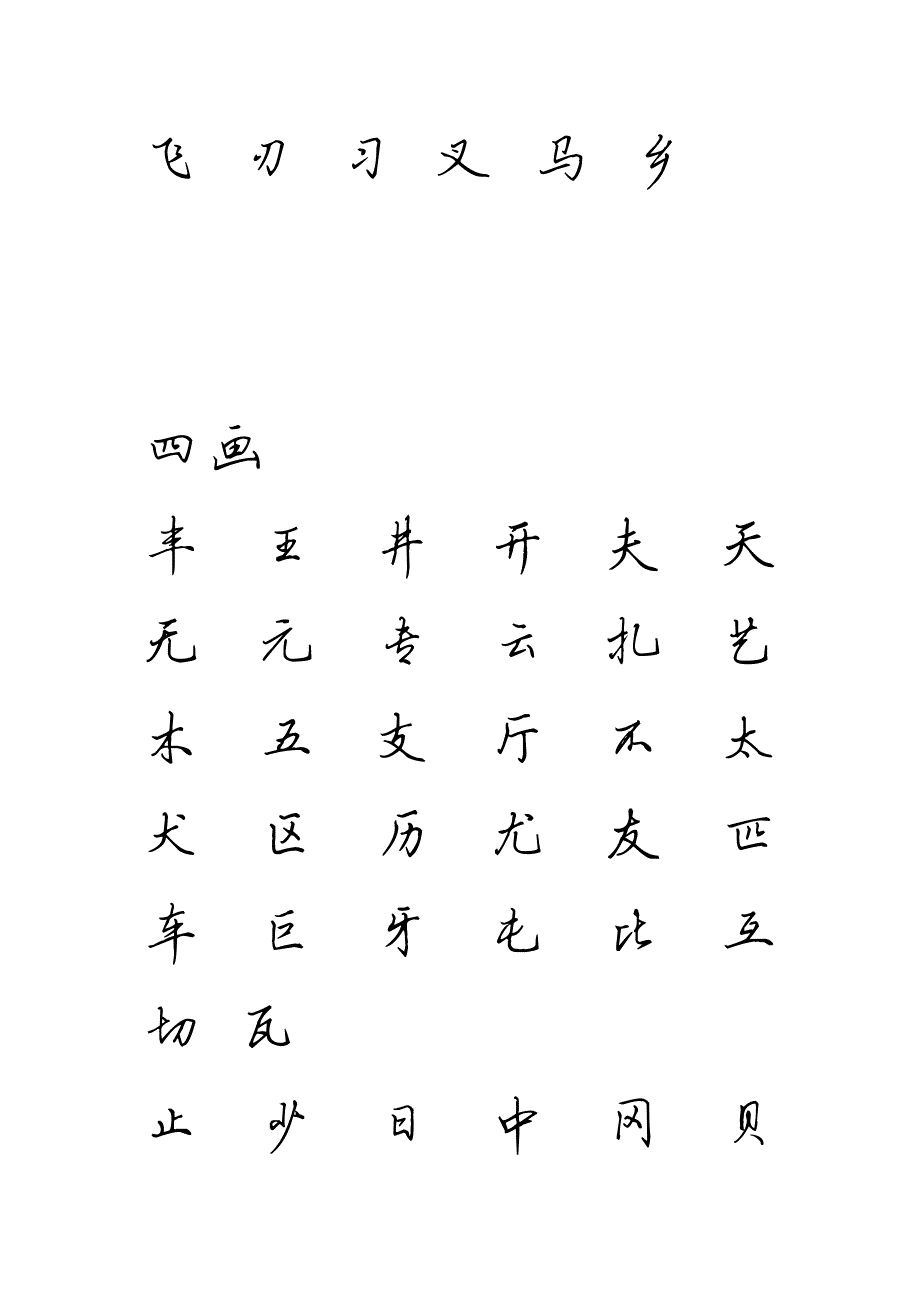 飞 刃 习 叉 马 乡
四画
丰 王 井 开 夫 天
无 元 专 云 扎 艺
木 五 支 厅 不 太
犬 区 历 尤 友 匹
车 巨 牙 屯 比 互
切 瓦
止 少 日 中 冈 贝